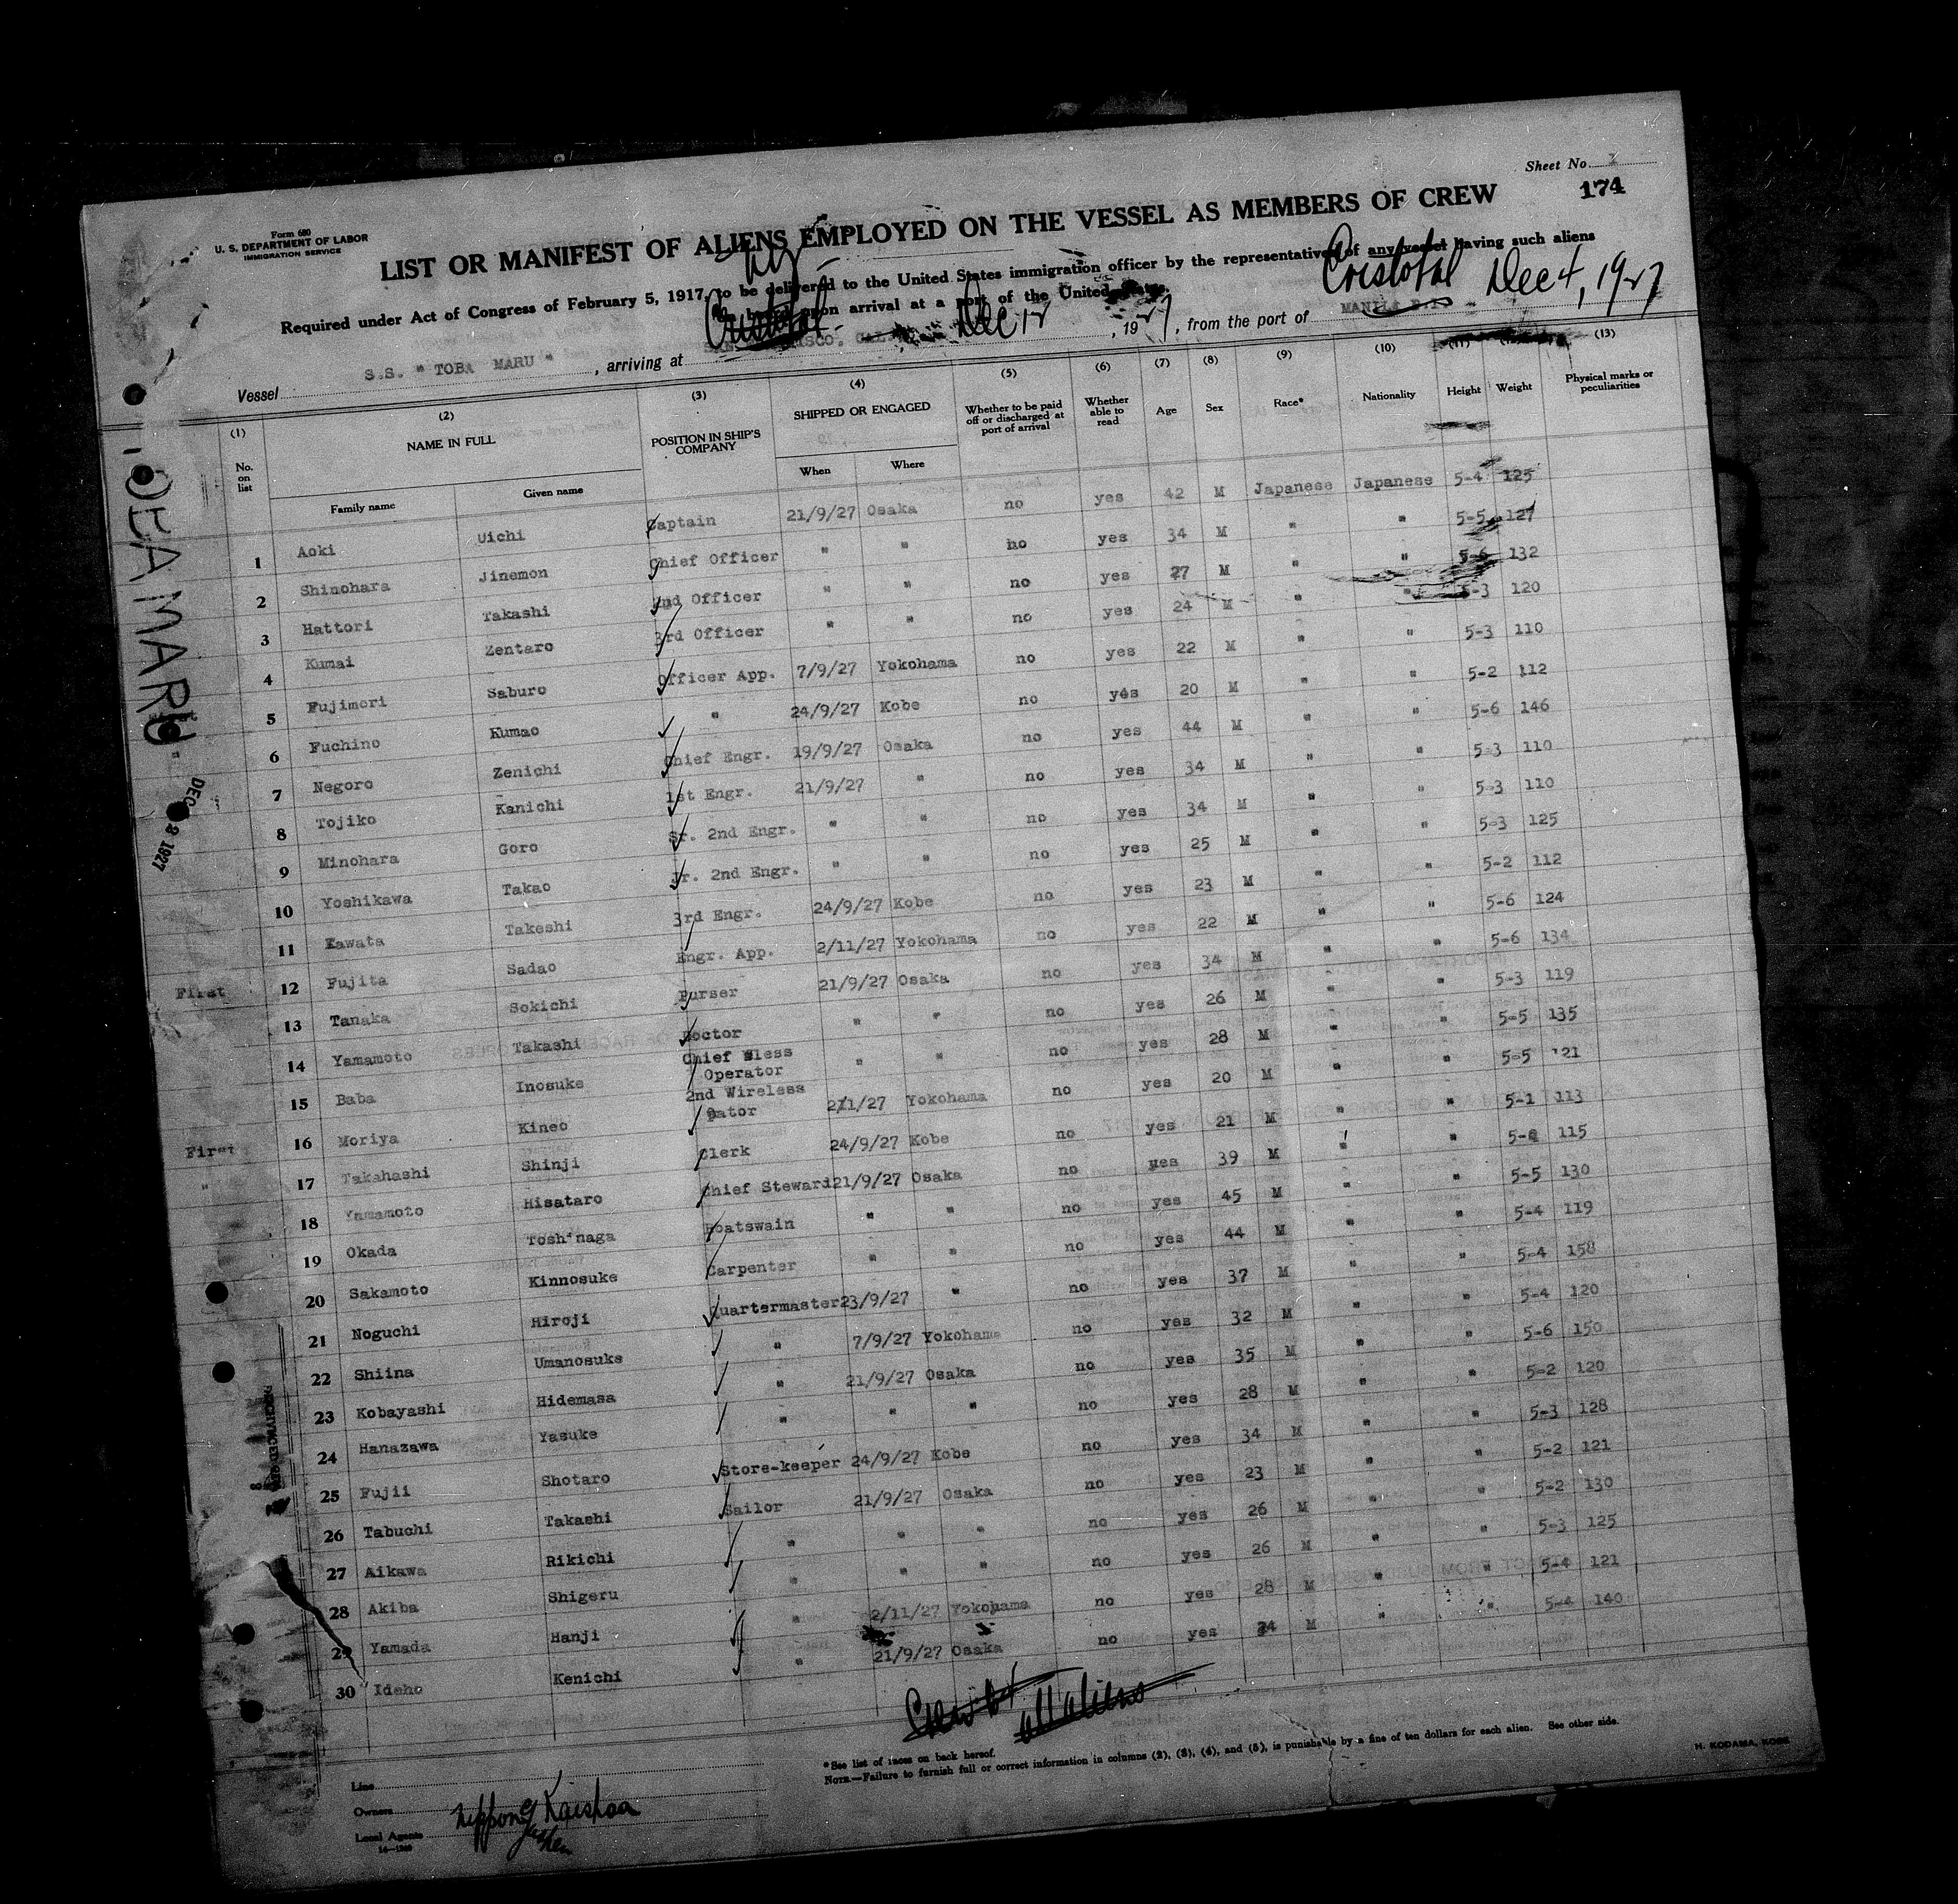 Sheet No. 1
174
Form 680
U. S. DEPARTMENT OF LABOR
IMMIGRATION SERVICE
LIST OR MANIFEST OF ALIENS EMPLOYED ON THE VESSEL AS MEMBERS OF CREW
Required under Act of Congress of February 5, 1917, to be delivered to the United States immigration officer by the representative of any vessel having such aliens
on board upon arrival at a port of the United States
Vessel S.S. " TOBA MARU " , arriving at Cristobal Dec 12 , 1927, from the port of MANILA P.I. Cristobal Dec 4, 1927
(1) (2) (3) (4) (5) (6) (7) (8) (9) (10) (11) (13)
No. on list NAME IN FULL POSITION IN SHIP'S COMPANY SHIPPED OR ENGAGED Whether to be paid off or discharged at port of arrival Whether able to read Age Sex Race* Nationality Height Weight Physical marks or peculiarities
Family name Given name When Where
1 Aoki Uichi Captain 21/9/27 Osaka no yes 42 M Japanese Japanese 5-4 125
2 Shinohara Jinemon Chief Officer " " no yes 34 M " " 5-5 127
3 Hattori Takashi 2nd Officer " " no yes 27 M " " 5-6 132
4 Kumai Zentaro 3rd Officer " " no yes 24 M " " 5-3 120
5 Fujimori Saburo Officer App. 7/9/27 Yokohama no yes 22 M " " 5-3 110
6 Fuchino Kumao " 24/9/27 Kobe no yes 20 M " " 5-2 112
7 Negoro Zenichi Chief Engr. 19/9/27 Osaka no yes 44 M " " 5-6 146
8 Tojiko Kanichi 1st Engr. 21/9/27 " no yes 34 M " " 5-3 110
9 Minohara Goro Sr. 2nd Engr. " " no yes 34 M " " 5-3 110
10 Yoshikawa Takao Jr. 2nd Engr. " " no yes 25 M " " 5-3 125
11 Kawata Takeshi 3rd Engr. 24/9/27 Kobe no yes 23 M " " 5-2 112
First 12 Fujita Sadao Engr. App. 2/11/27 Yokohama no yes 22 M " " 5-6 124
13 Tanaka Sokichi Purser 21/9/27 Osaka no yes 34 M " " 5-6 134
14 Yamamoto Takashi Doctor " " no yes 26 M " " 5-3 119
15 Baba Inosuke Chief Wless Operator " " no yes 28 M " " 5-5 135
First 16 Moriya Kineo 2nd Wireless Opator 2/11/27 Yokohama no yes 20 M " " 5-5 121
" 17 Takahashi Shinji Clerk 24/9/27 Kobe no yes 21 M " " 5-1 113
18 Yamamoto Hisataro Chief Steward 21/9/27 Osaka no yes 39 M " " 115
19 Okada Toshinaga Boatswain " " no yes 45 M " " 5-5 130
20 Sakamoto Kinnosuke Carpenter " " no yes 44 M " " 5-4 119
21 Noguchi Hiroji Quartermaster 23/9/27 " no yes 37 M " " 5-4 158
22 Shiina Umanosuke " 7/9/27 Yokohama no yes 32 M " " 5-4 120
23 Kobayashi Hidemasa " 21/9/27 Osaka no yes 35 M " " 5-6 150
24 Hanazawa Yasuke " " " no yes 28 M " " 5-2 120
25 Fujii Shotaro Store-keeper 24/9/27 Kobe no yes 34 M " " 5-3 128
26 Tabuchi Takashi Sailor 21/9/27 Osaka no yes 23 M " " 5-2 121
27 Aikawa Rikichi " " " no yes 26 M " " 5-2 130
28 Akiba Shigeru " " " no yes 26 M " " 5-3 125
29 Yamada Hanji " 2/11/27 Yokohama no yes 28 M " " 5-4 121
30 Ideho Kenichi " 21/9/27 Osaka no yes 24 M " " 5-4 140
all aliens
*See list of races on back hereof.
NOTE.—Failure to furnish full or correct information in columns (2), (3), (4), and (5), is punishable by a fine of ten dollars for each alien. See other side.
H. KODAMA, KOBE
Line
Owners Nippon Yusen Kaisha
Local Agents
14—1240
MARU
DEC 1927